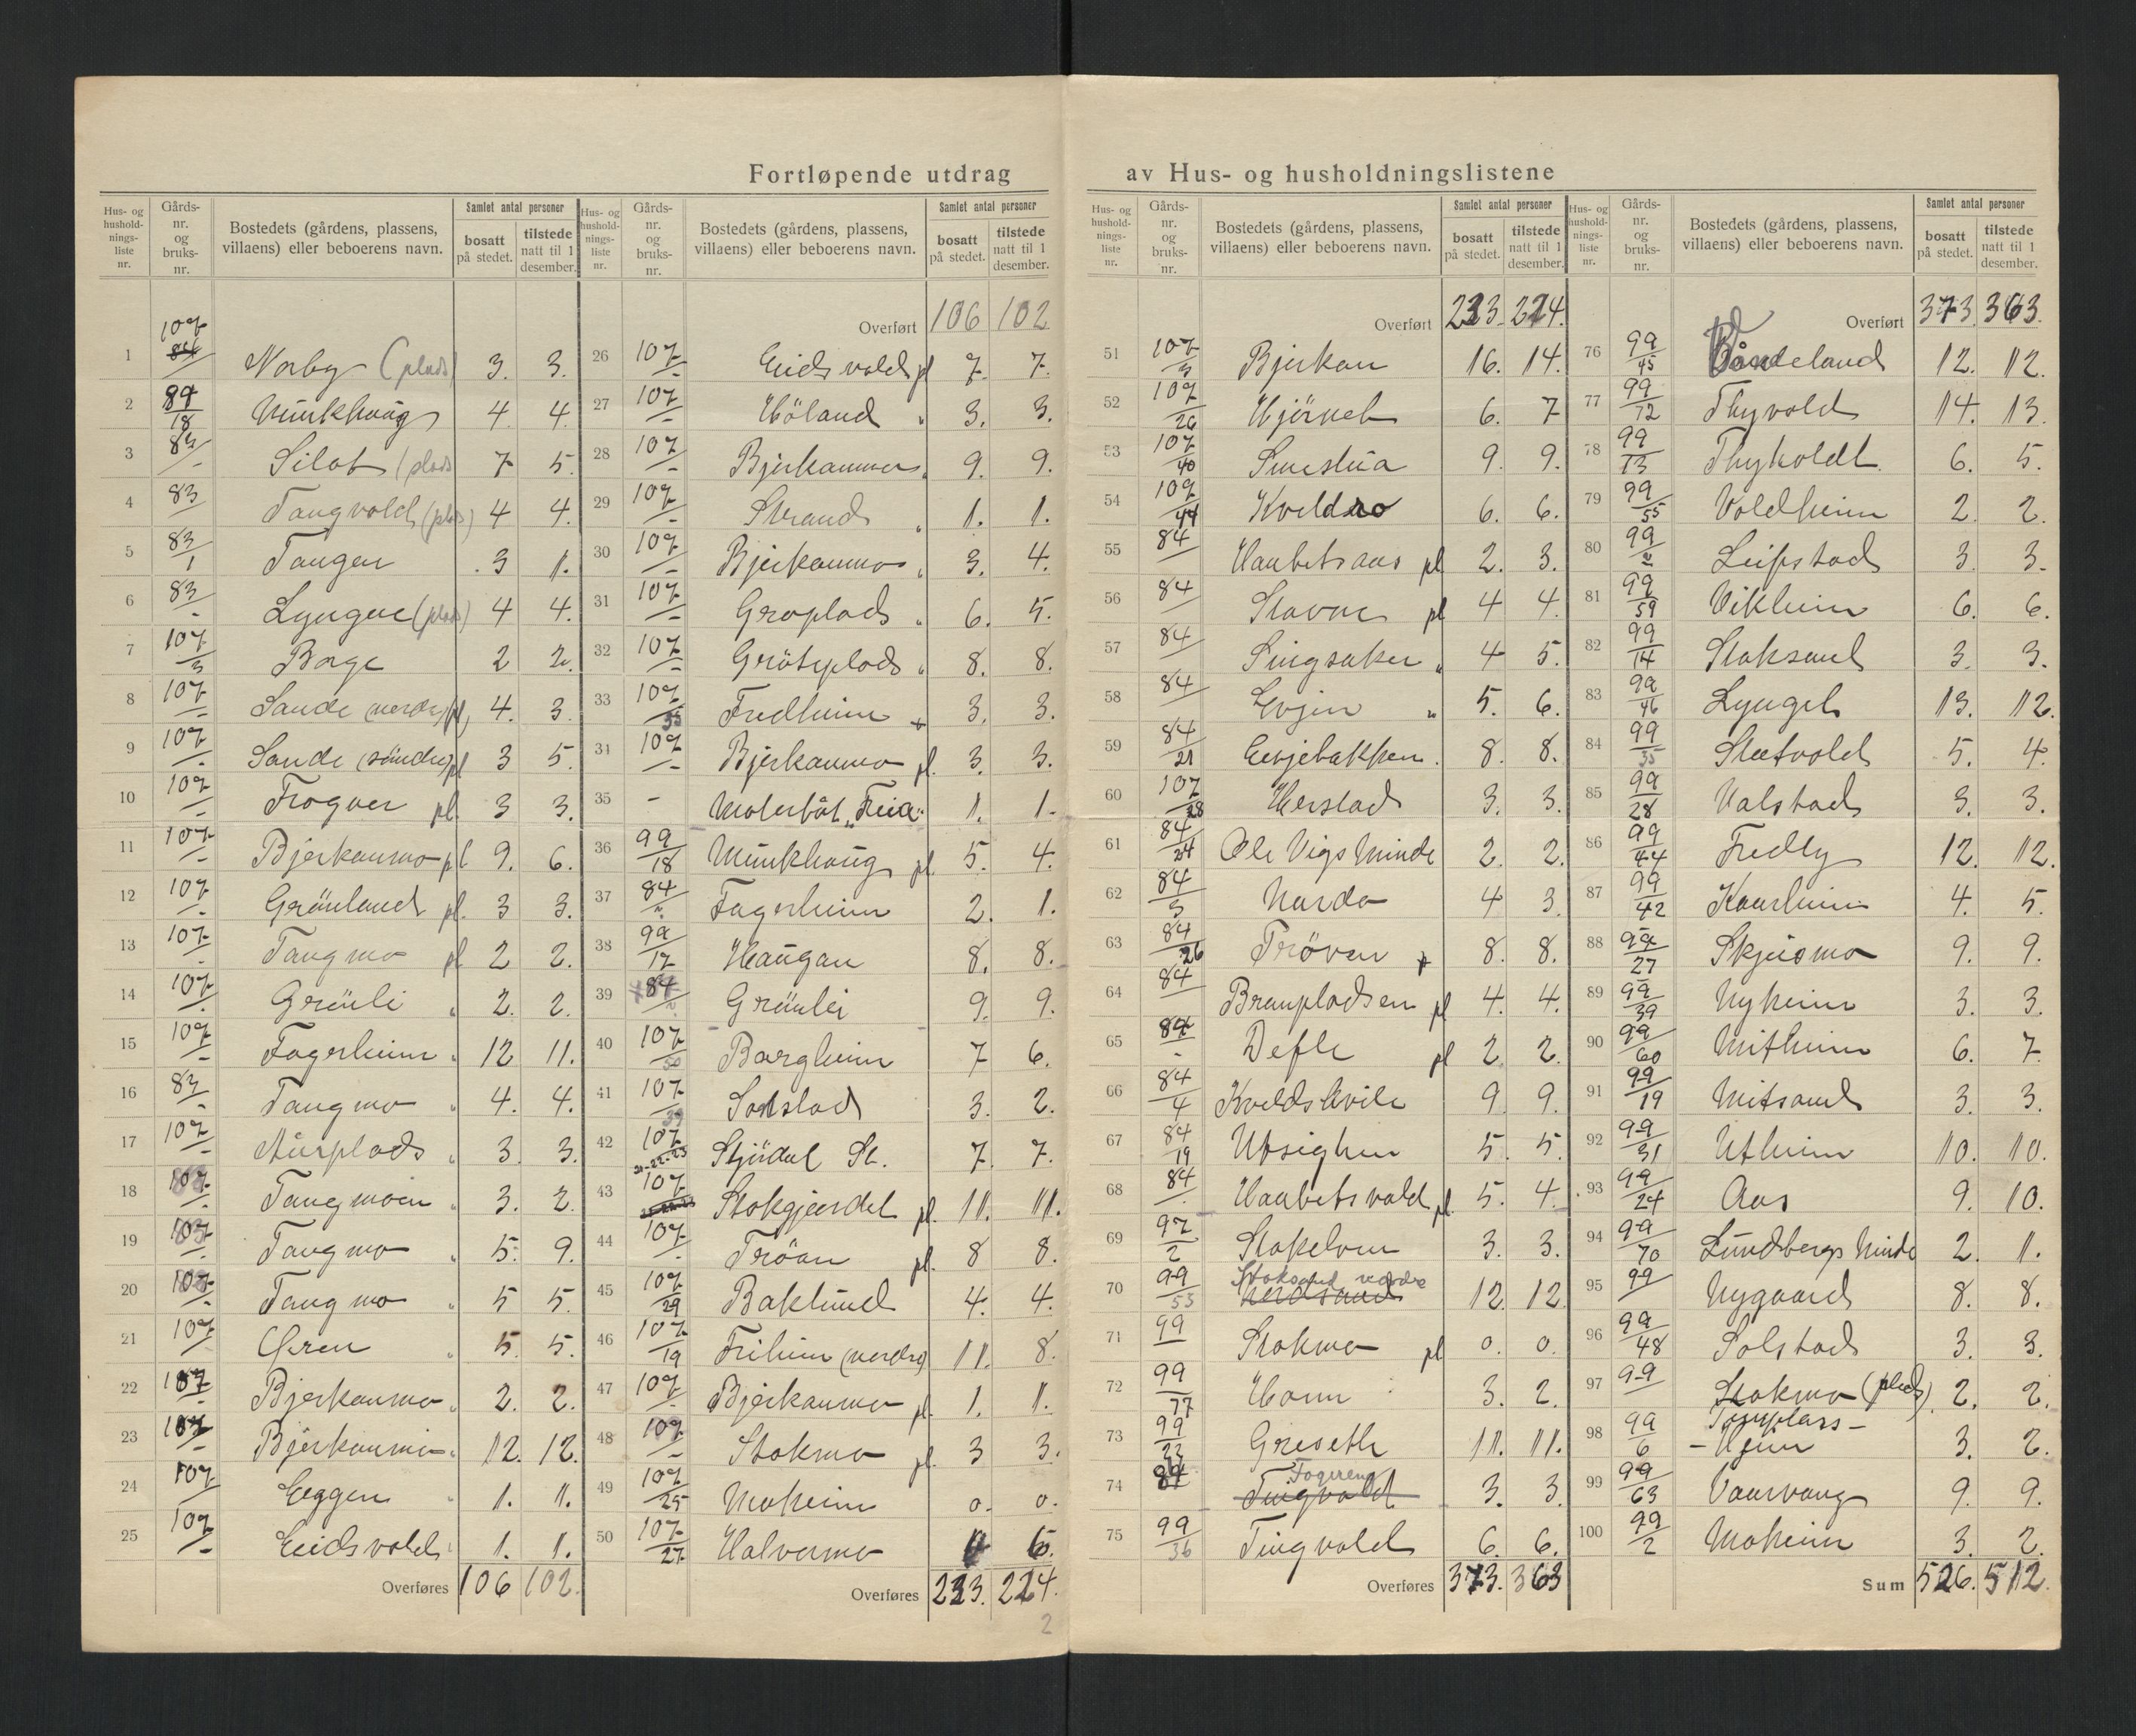 Fortløpende utdrag av Hus- og husholdningslistene
Hus- og husholdnings-liste nr. Gårds-nr. og bruks-nr. Bostedets (gårdens, plassens, villaens) eller beboerens navn. Samlet antal personer bosatt på stedet. tilstede natt til 1 desember.
1 107 Norby (plads) 3. 3.
2 84/18 Munkhaug 4 4.
3 83/- (plads) 7 5.
4 83 Tangvold (plads) 4 4.
5 83/1 Tangen 3 1.
6 83/- (plads) 4 4.
7 107/3 Borge 2 2.
8 107/- Sande (nordre) pl 4. 3
9 107/- Sande (søndre) pl 3 5.
10 107/- Frogner pl. 3 3.
11 107/- Bjerkanmo pl 9. 6.
12 107/- Grönland pl. 3 3.
13 107/- Tangmo pl 2 2.
14 107/- Grönli " 2. 2.
15 107/- Fagerheim " 12 11.
16 83/- Tangmo " 4. 4.
17 107/- Aunplads " 3. 3.
18 107/- Tangmoen " 3. 2.
19 107/- Tangmo " 5. 9.
20 107/- Tangmo " 5 5.
21 107/- Øren " 5. 5.
22 107/- Bjerkanmo " 2. 2.
23 107/- Bjerkanmo " 12. 12.
24 107/- Eggen " 1. 1.
25 107/- Eidsvold " 1. 1.
Overføres 106 102.
Hus- og husholdnings-liste nr. Gårds-nr. og bruks-nr. Bostedets (gårdens, plassens, villaens) eller beboerens navn. Samlet antal personer bosatt på stedet. tilstede natt til 1 desember.
Overført 106 102
26 107/- Eidsvold pl 7. 7.
27 107/- Höland " 3. 3.
28 107/- Bjerkanmo " 9. 9.
29 107/- Strand " 1. 1.
30 107/- Bjerkanmo " 3. 4.
31 107/- Groplads " 6. 5.
32 107/- Gröteplads " 8. 8.
33 107/35 Fredheim 3. 3.
34 107/- Bjerkanmo pl. 3. 3.
35 - Motorbåt "Freia" 1. 1.
36 99/18 Munkhaug pl. 5. 4.
37 84/" Fagerheim 2. 1.
38 99/17 Haugan 8. 8.
39 84/" Grönlei 9. 9.
40 107/50 Borgheim 7 6.
41 107/39 Solstad 3. 2.
42 107/21-22-23 Stjördal St. 7. 7.
43 107 Stokgjærdet pl. 11. 11.
44 107/- Tröan pl. 8 8.
45 107/29 Baklund 4. 4.
46 107/19 Friheim (nordre) 11. 8.
47 107/- Bjerkanmo pl. 1. 1.
48 107/- Stokmo pl. 3 3.
49 107/25 Moheim 0. 0.
50 107/27 Halvormo 6.
Overføres 233. 224.
2
Hus- og husholdnings-liste nr. Gårds-nr. og bruks-nr. Bostedets (gårdens, plassens, villaens) eller beboerens navn. Samlet antal personer bosatt på stedet. tilstede natt til 1 desember.
Overført 233. 224.
51 107/3 Bjerkan 16. 14.
52 107/26 Hjörnet 6. 7
53 107/40 Smestua 9. 9.
54 107/44 Kveldro 6. 6.
55 84 Haabetsaas pl 2. 3.
56 84 Stavne pl 4 4.
57 84 Singsaker " 4 5.
58 84 Evjen " 5. 6.
59 84/21 Evjebakken 8. 8.
60 107/28 Herstad 3. 3.
61 84/24 Ole Vigs Minde 2. 2.
62 84/3 Nardo 4 3.
63 84/26 Tröven 8. 8.
64 84 Branpladsen pl 4. 4.
65 84/- Defle pl 2. 2.
66 84/4 Kveldshvile 9. 9.
67 84/19 Utsigten 5. 5.
68 84/- Haabetsvold pl. 5. 4.
69 97/2 Stokelven 3. 3.
70 99/53 Stoksand nordre 12. 12
71 99 Stokmo pl 0. 0.
72 99/77 Havn 3. 2.
73 99/22 Greseth 11. 11.
74 84 Tingvold 3. 3.
75 99/36 Tingvold 6. 6.
Overføres 373. 363
Hus- og husholdnings-liste nr. Gårds-nr. og bruks-nr. Bostedets (gårdens, plassens, villaens) eller beboerens navn. Samlet antal personer bosatt på stedet. tilstede natt til 1 desember.
Overført 373. 363.
76 99/45 12. 12.
77 99/12 Thyvold 14. 13.
78 99/13 Thyholdt 6. 5.
79 99/55 Voldheim 2. 2.
80 99/" Leifstad 3. 3.
81 99/59 Vikheim 6. 6.
82 99/14 Stoksand 3. 3.
83 99/46 Lynget 13. 12.
84 99/35 Sletvold 5. 4.
85 99/28 Valstad 3. 3.
86 99/44 Fredly 12. 12.
87 99/42 Kaarheim 4. 5.
88 99/27 Skjeismo 9. 9.
89 99/39 Nyheim 3. 3.
90 99/60 Mitheim 6. 7.
91 99/19 Mitsand 3. 3.
92 99/31 Utheim 10. 10.
93 99/24 Aas 9. 10.
94 99/70 Lundbergs Minde 2. 1.
95 99 Nygaard 8. 8.
96 99/48 Solstad 3. 3.
97 99 Stokmo (plads) 2. 2.
98 99/6 3. 2.
99 99/63 Vaarvang 9. 9.
100 99/2 Moheim 3. 2.
Sum 526. 512.